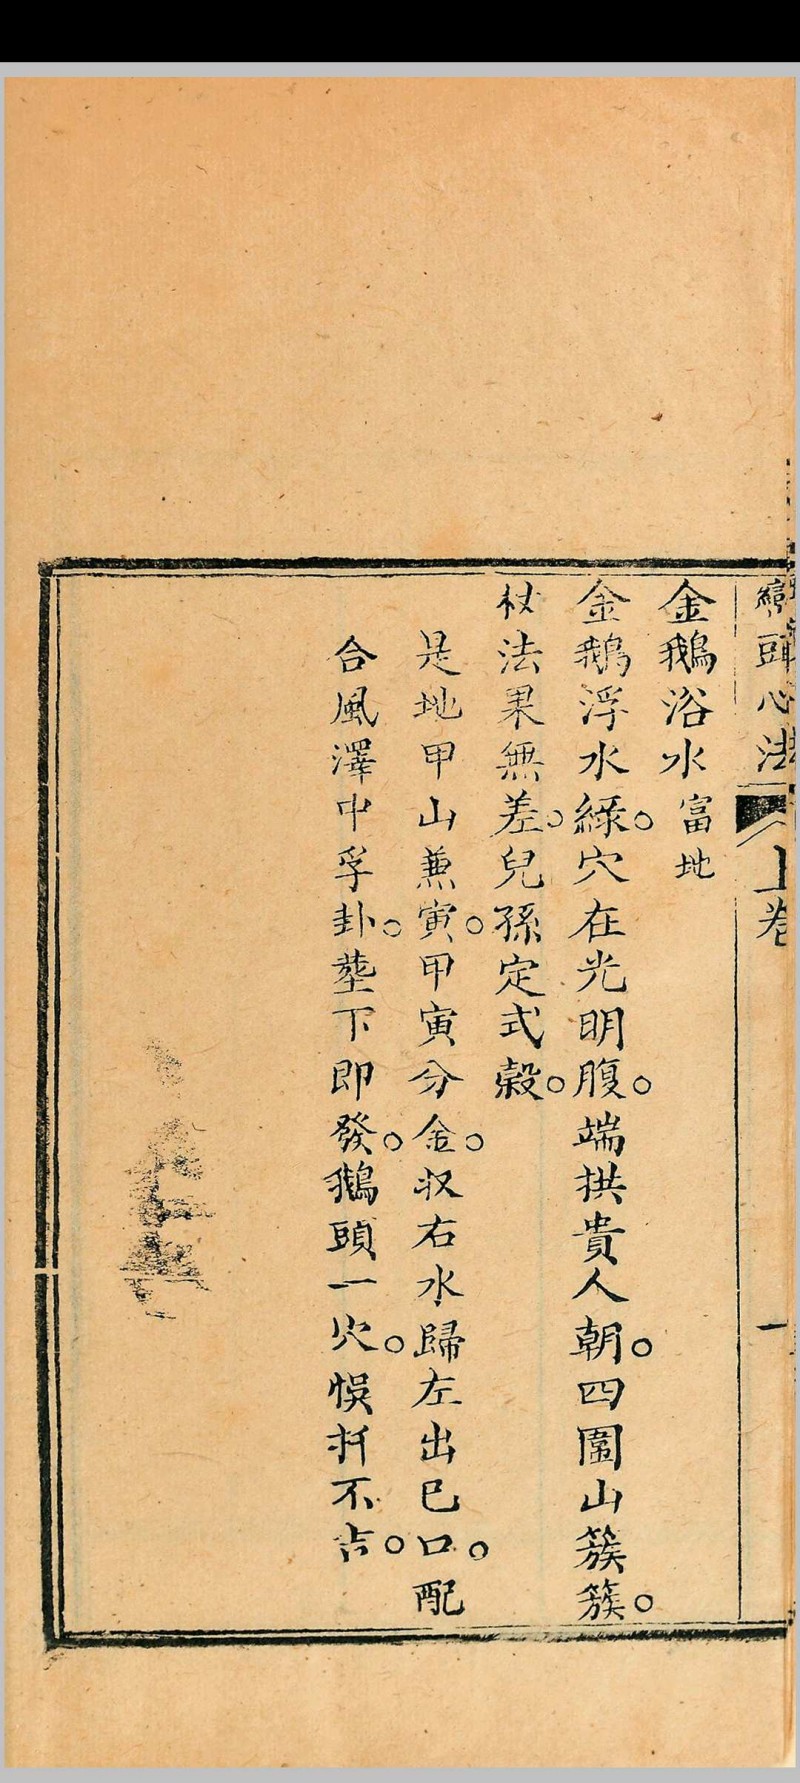 巒頭心法
上卷
一
金鵝浴水 富地
金鵝浮水綠。穴在光明腹。端拱貴人朝。四圍山簇簇。
杖法果無差。兒孫定式穀。
是地甲山兼寅。甲寅分金。收右水歸左出巳口。配
合風澤中孚卦。塟下即發。鵝頭一穴。悞扦不吉。